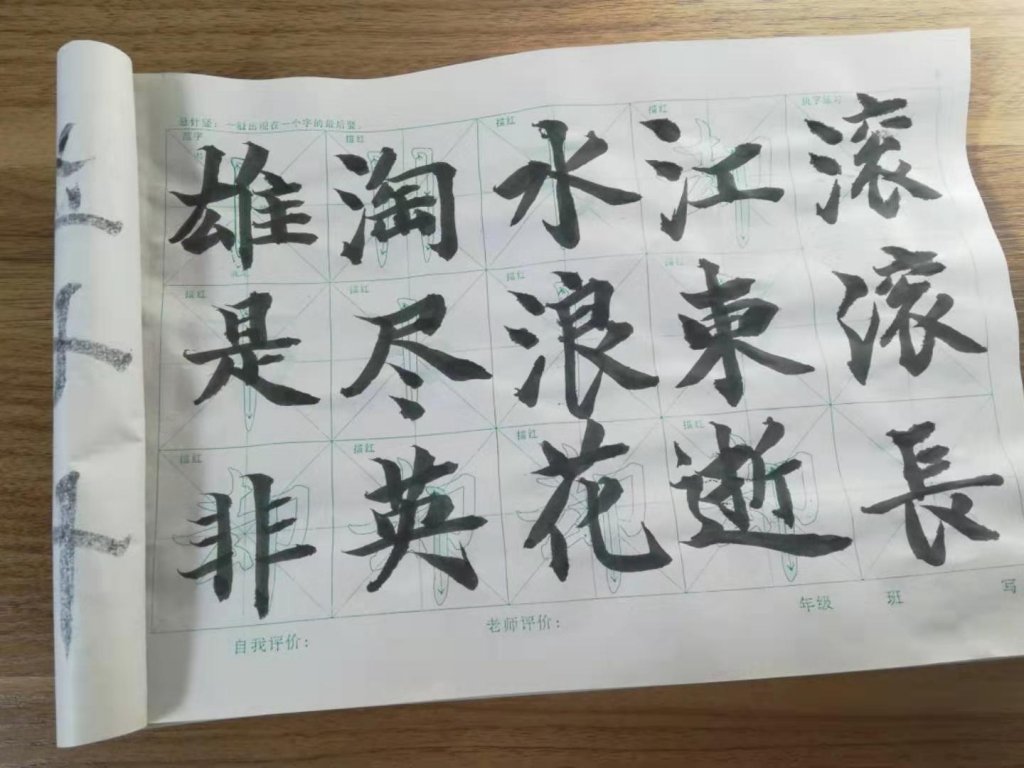 悬针竖:一般出现在一个字的最后竖。
范字 描红 描红 描红
滚滚長
江東逝
水浪花
淘尽英
雄是非
描红 描红 描红 描红
描红 描红 描红 描红
自我评价: 老师评价: 年级 班 写